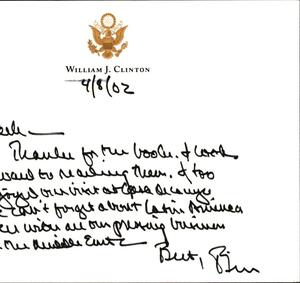 WILLIAM J. CLINTON
4/8/02
Thanks for the books. I look
ward to reading them. I too
joyed our visit at
can't forget about Latin America
with all our pressing business
the Middle East
Best, Bill